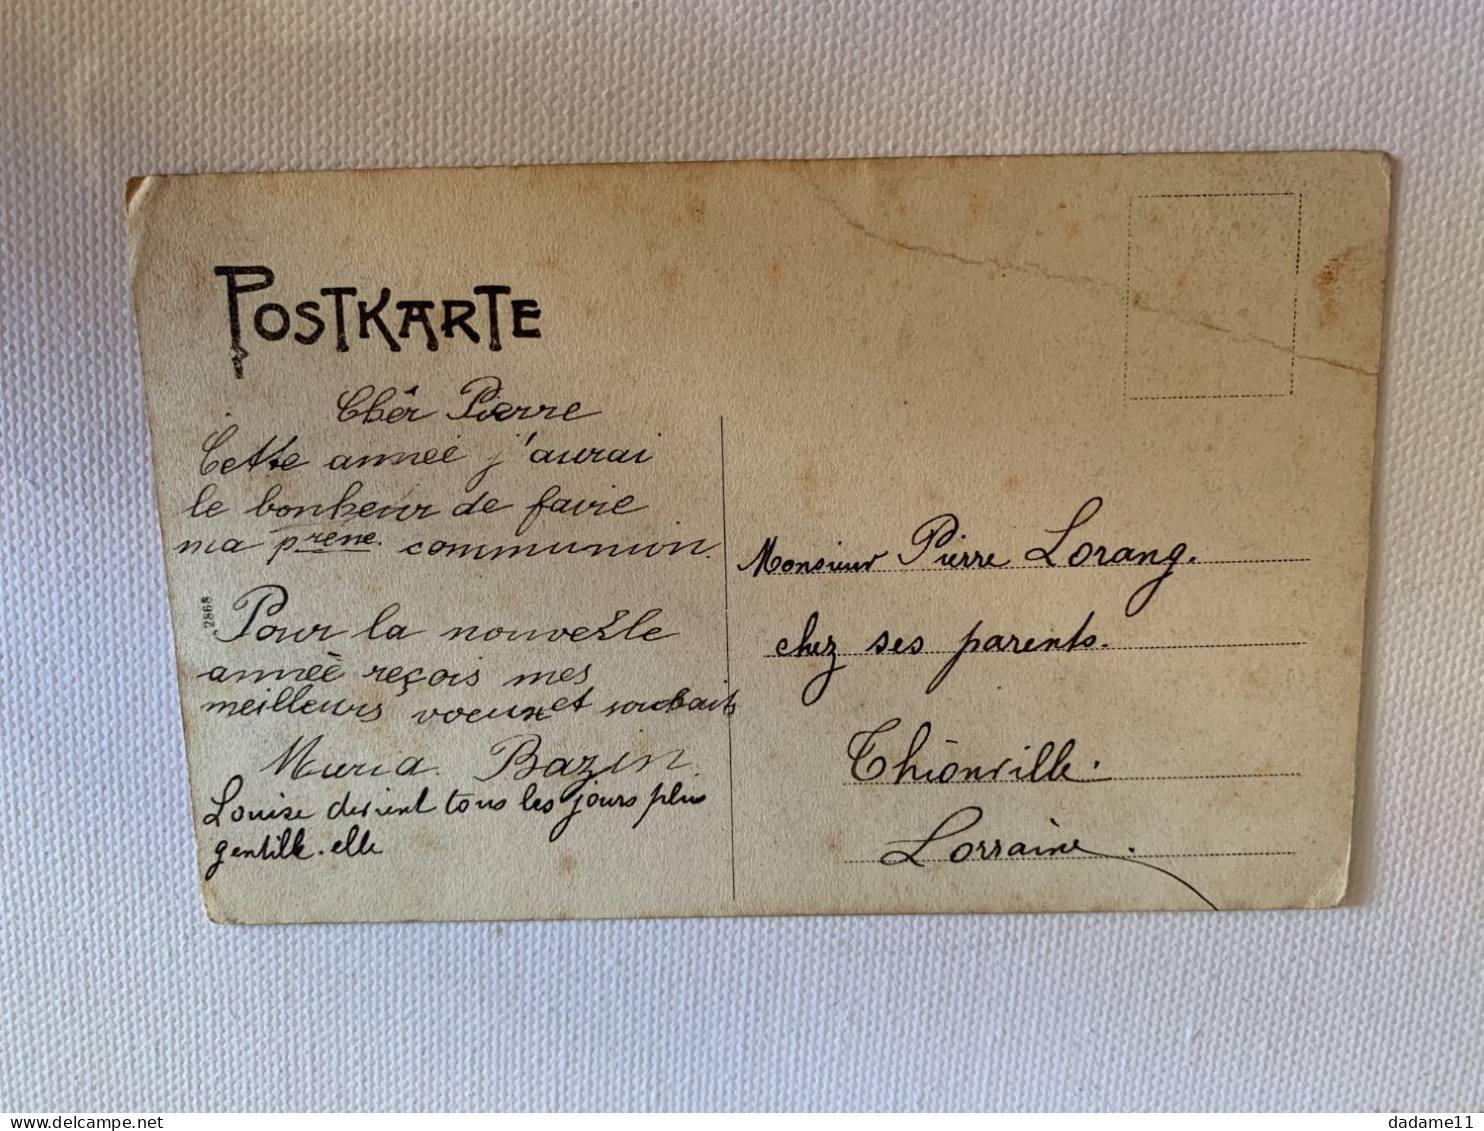 POSTKARTE
Chêr Pierre
Cette anneé j'aurai
le bonheur de faire
ma preme. communion.
2868
Pour la nouvelle
anneé reçois mes
meilleurs voeux et souhaits
Maria Bazin
Louise devient tous les jours plus
gentille. elle
Monsieur Pierre Lorang.
chez ses parents.
Thionville.
Lorraine.
dadame11